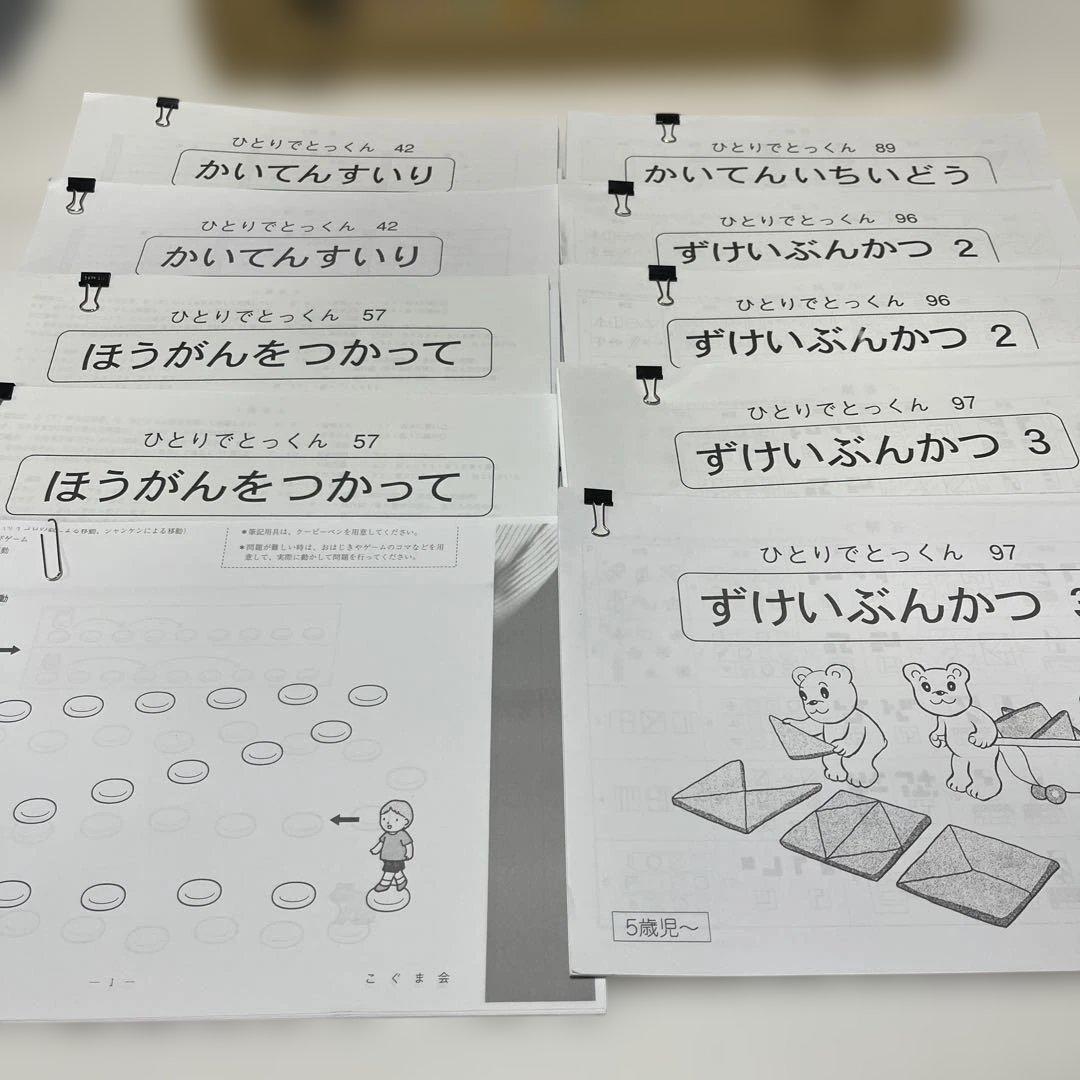 ひとりでとっくん 42
かいてんすいり
ひとりでとっくん 42
かいてんすいり
ひとりでとっくん 57
ほうがんをつかって
ひとりでとっくん 57
ほうがんをつかって
による移動、ジャンケンによる移動)
ゲーム
＊筆記用具は、クーピーペンを用意してください。
＊問題が難しい時は、おはじきやゲームのコマなどを用
意して、実際に動かして問題を行ってください。
— 1 —
こぐま会
ひとりでとっくん 89
かいてんいちいどう
ひとりでとっくん 96
ずけいぶんかつ 2
ひとりでとっくん 96
ずけいぶんかつ 2
ひとりでとっくん 97
ずけいぶんかつ 3
ひとりでとっくん 97
ずけいぶんかつ 3
5歳児～